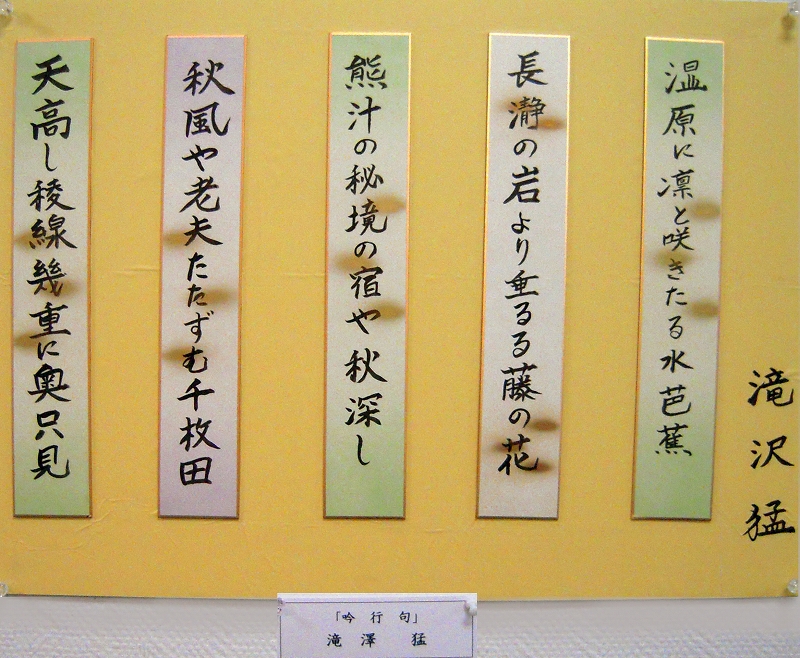 滝沢猛
温原に凛と咲きたる水芭蕉
長瀞の岩より垂るる藤の花
熊汁の秘境の宿や秋深し
秋風や老夫たたずむ千枚田
天高し稜線幾重に奥只見
「吟行句」
滝澤 猛